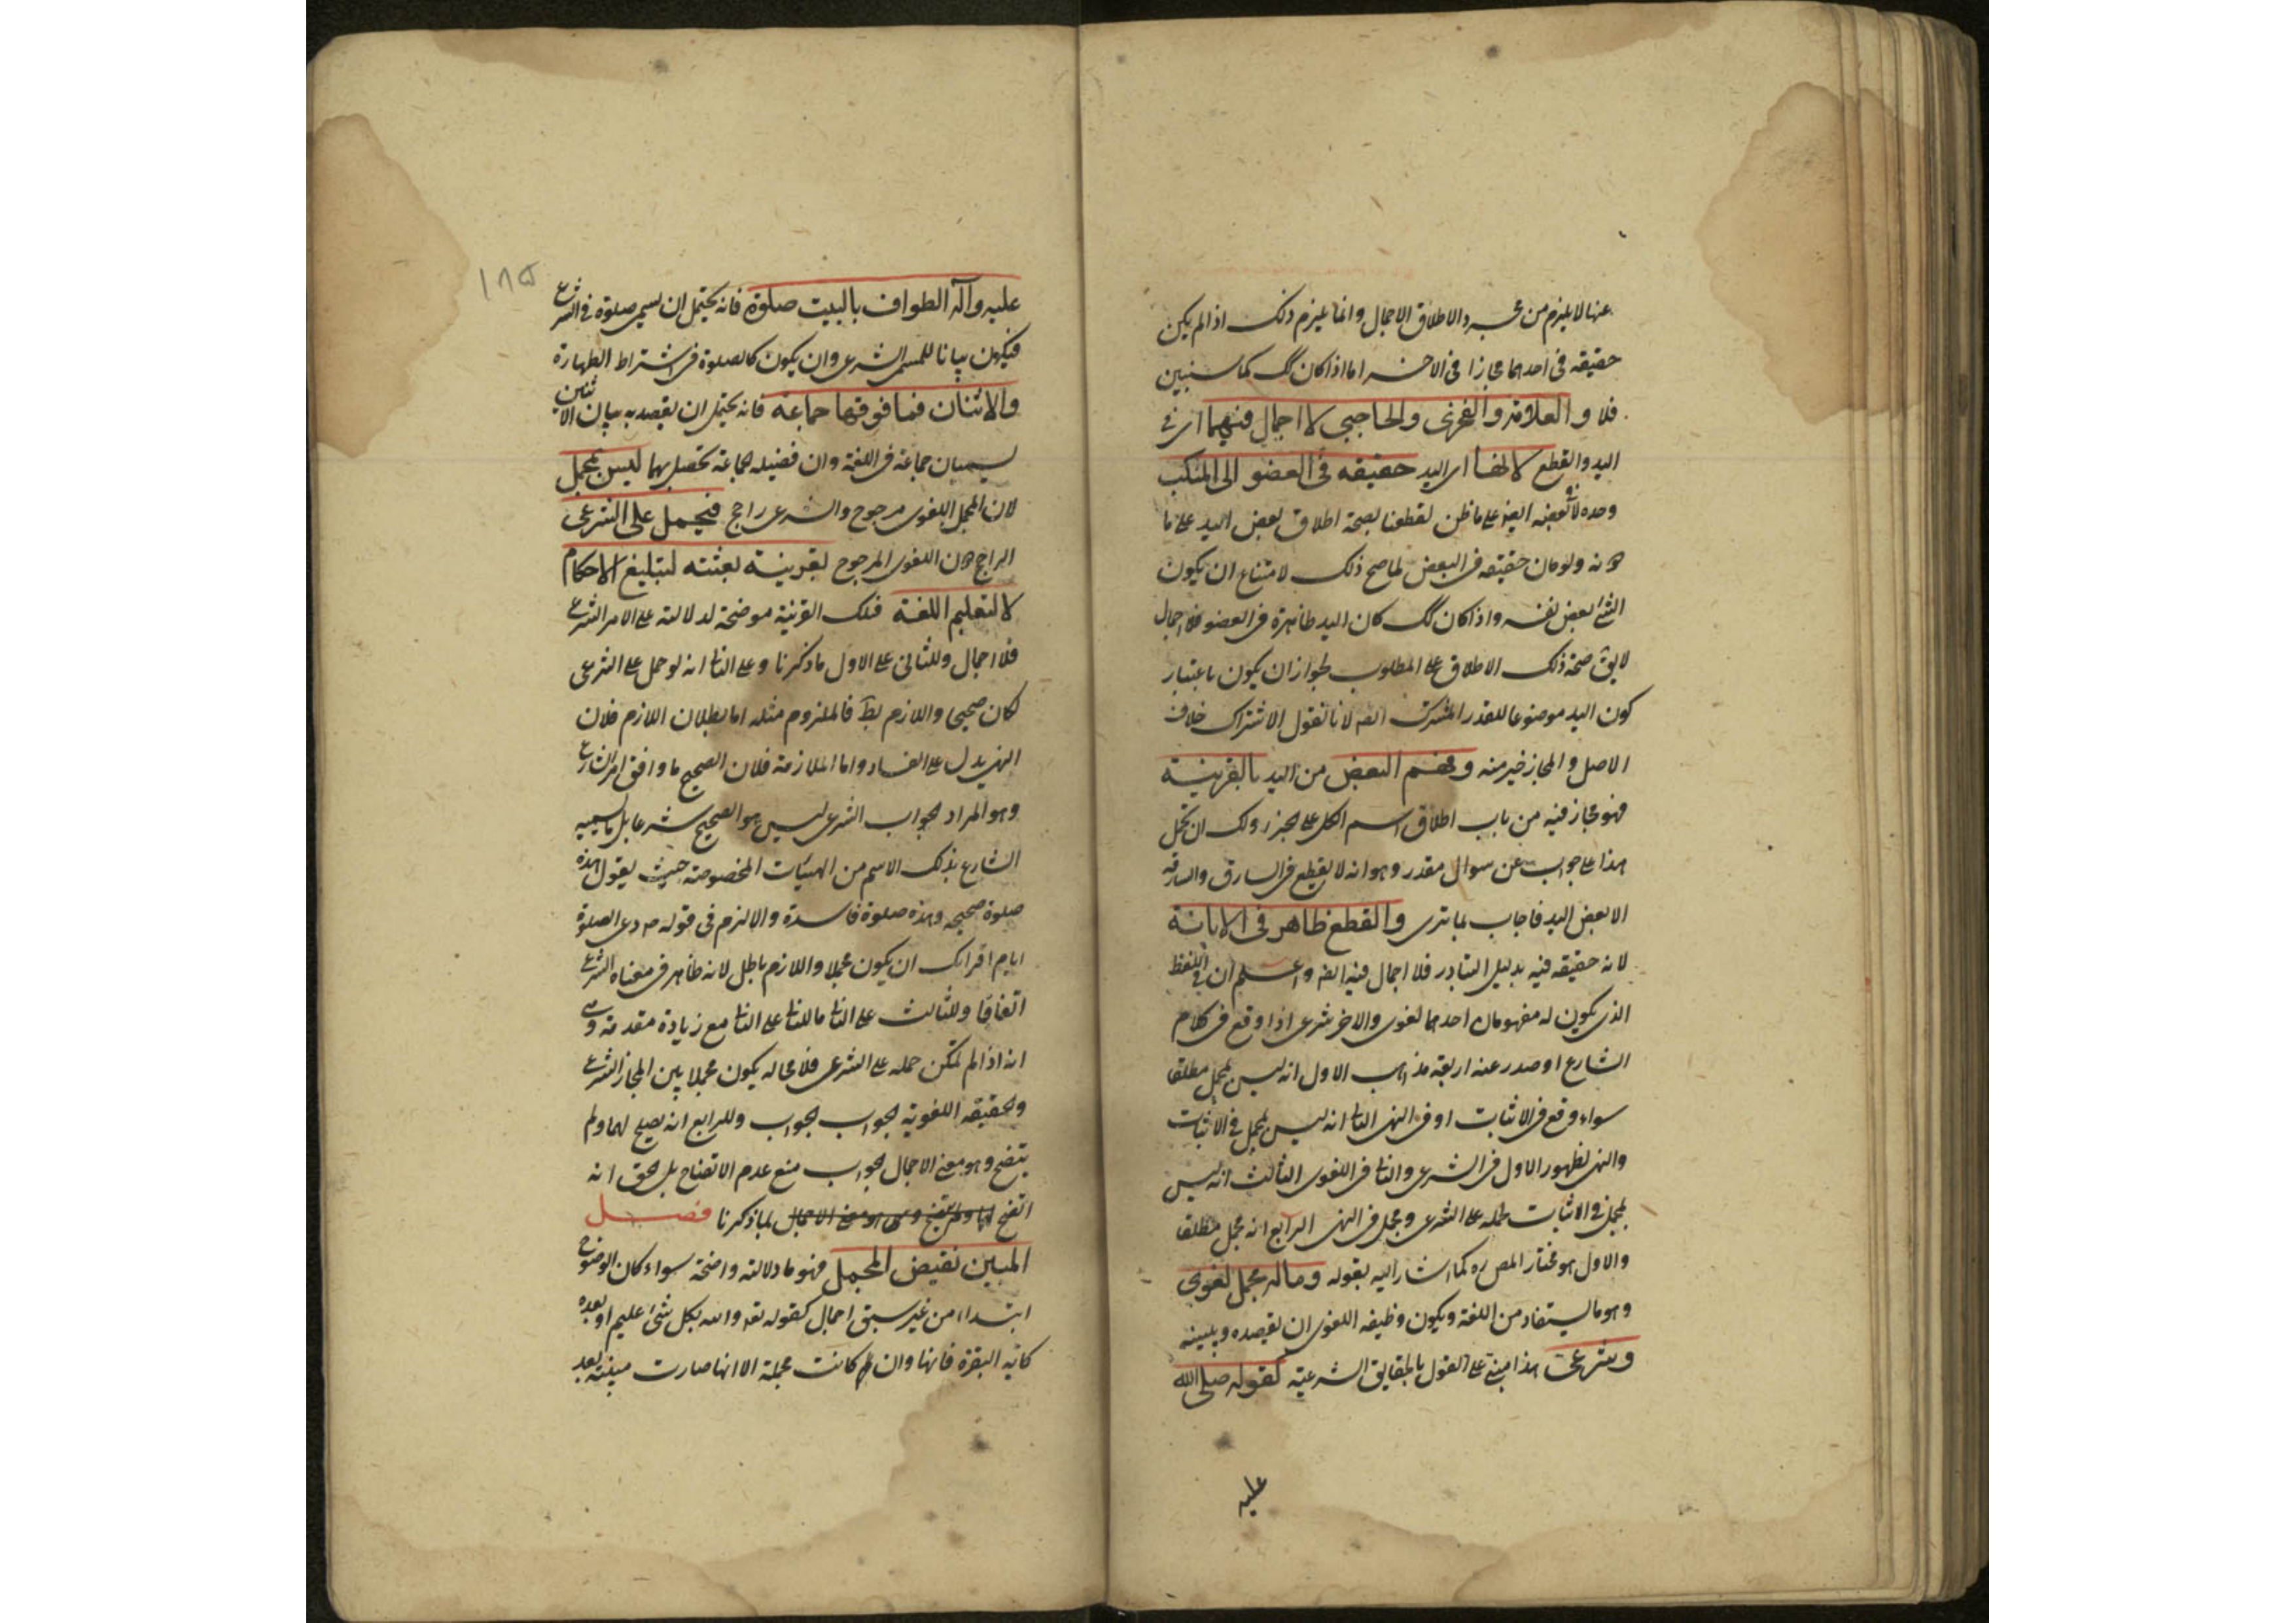 عنها لا يلزم من مجرد الاطلاق الاجمال وانما يلزم ذلك اذا لم يكن
حقيقه فى احدهما مجازا فى الاخر اما اذا كان كك كما سنبين
فلا و العلامة والفخرى والحاجبى لا اجمال فيهما اى فى
اليد والقطع لانها اى اليد حقيقه فى العضو الى المنكب
وحده لا بعضه ايضا على ما ظن لقطعنا بصحة اطلاق بعض اليد على ما
دونه ولو كان حقيقه فى البعض لما صح ذلك لامتناع ان يكون
الشئ بعض نفسه واذا كان كك كان اليد ظاهرة فى العضو فلا اجمال
لا يق صحة ذلك الاطلاق على المطلوب لجواز ان يكون باعتبار
كون اليد موضوعا للقدر المشترك ايضا لانا نقول الاشتراك خلاف
الاصل والمجاز خير منه وفهم البعض من اليد بالقرينة
فهو مجاز فيه من باب اطلاق اسم الكل على الجزء ولك ان تحمل
هذا على جواب عن سوال مقدر وهو انه لا يقطع فى السارق والسارقه
الا بعض اليد فاجاب بما ترى والقطع ظاهر فى الابانة
لانه حقيقه فيه بدليل التبادر فلا اجمال فيه ايضا واعلم ان فى اللفظ
الذى يكون له مفهومان احدهما لغوى والاخر شرعى اذا وقع فى كلام
الشارع او صدر عنه اربعة مذاهب الاول انه ليس بمجمل مطلقا
سواء وقع فى الاثبات او فى النهى الثا انه ليس بمجمل فى الاثبات
والنهى لظهور الاول فى الشرعى والثا فى اللغوى الثالث انه ليس
بمجمل فى الاثبات لحمله على الشرعى ومجمل فى النهى الرابع انه مجمل مطلقا
والاول هو مختار المص ره كما اشار اليه بقوله وماله محمل لغوى
وهو ما يستفاد من اللغة ويكون وظيفه اللغوى ان يقصده ويبينه
وشرعى هذا مبنى على القول بالحقايق الشرعية كقوله صلى الله
عليه
١٨٥
عليه وآله الطواف بالبيت صلوة فانه يحتمل ان يسمى صلوة فى الشرع
فيكون بيانا للمسمى الشرعى وان يكون كالصلوة فى اشتراط الطهارة
والاثنان فما فوقهما جماعة فانه يحتمل ان يقصد به بيان ان الاثنين
يسميان جماعة فى اللغة وان فضيله الجماعة تحصل بهما ليس بمجمل
لان المحمل اللغوى مرجوح والشرعى راجح فيحمل على الشرعى
الراجح دون اللغوى المرجوح لقرينة بعثته لتبليغ الاحكام
لا لتعليم اللغة فتلك القرينة موضحة لدلالته على الامر الشرعى
فلا اجمال وللثانى على الاول ما ذكرنا وعلى الثا انه لو حمل على الشرعى
لكان صحيحا واللازم بط فالملزوم مثله اما بطلان اللازم فلان
النهى يدل على الفساد واما الملازمة فلان الصحيح ما وافق امر الشارع
وهو المراد الجواب الشرعى ليس هو الصحيح شرعا بل ما يسميه
الشارع بذلك الاسم من الهيئات المخصوصة حيث يقول هذه
صلوة صحيحه وهذه صلوة فاسدة والا لزم فى قوله ص دعى الصلوة
ايام اقرائك ان يكون مجملا واللازم باطل لانه ظاهر فى معناه الشرعى
اتفاقا وللثالث على الثا ما للثا على الثا مع زيادة مقدمة وهى
انه اذا لم يمكن حمله على الشرعى فلا محاله يكون مجملا بين المجاز الشرعى
والحقيقه اللغوية الجواب الجواب وللرابع انه يصلح لهما ولم
يتضح وهو معنى الاجمال الجواب منع عدم الاتضاح بل الحق انه
اتضح لهما ولم يتضح وهو معنى الاجمال بما ذكرنا فصل
المبين نقيض المجمل فهو ما دلالته واضحة سواء كان الوضوح
ابتداء من غير سبق اجمال كقوله تعه والله بكل شئ عليم او بعده
كاية البقرة فانها وان كانت مجملة الا انها صارت مبينة بعد